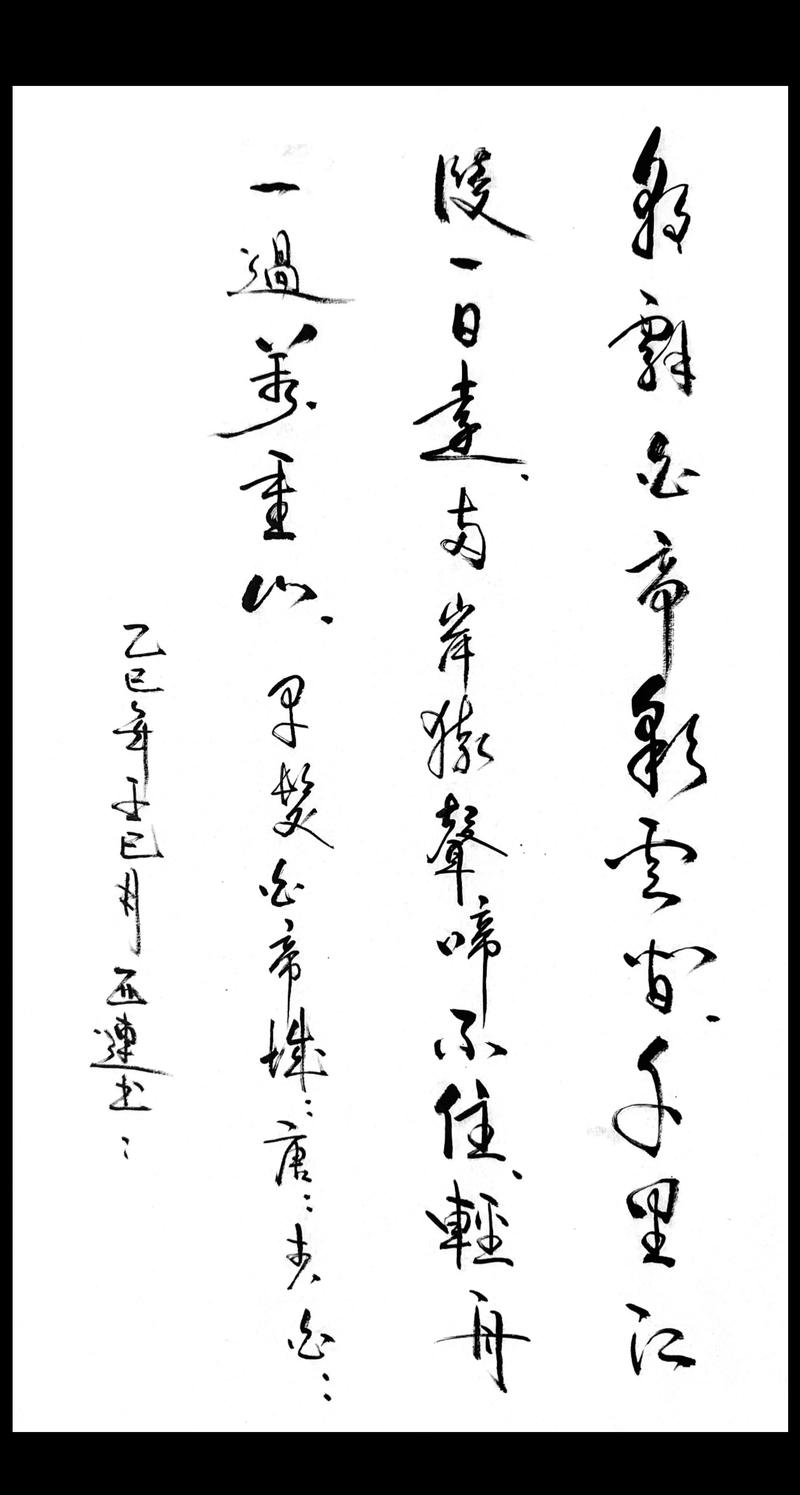 朝辭白帝彩雲間、千里江
陵一日還、兩岸猿聲啼不住、輕舟
一過萬重山、早發白帝城：唐：李白：
乙巳年巳月連书：